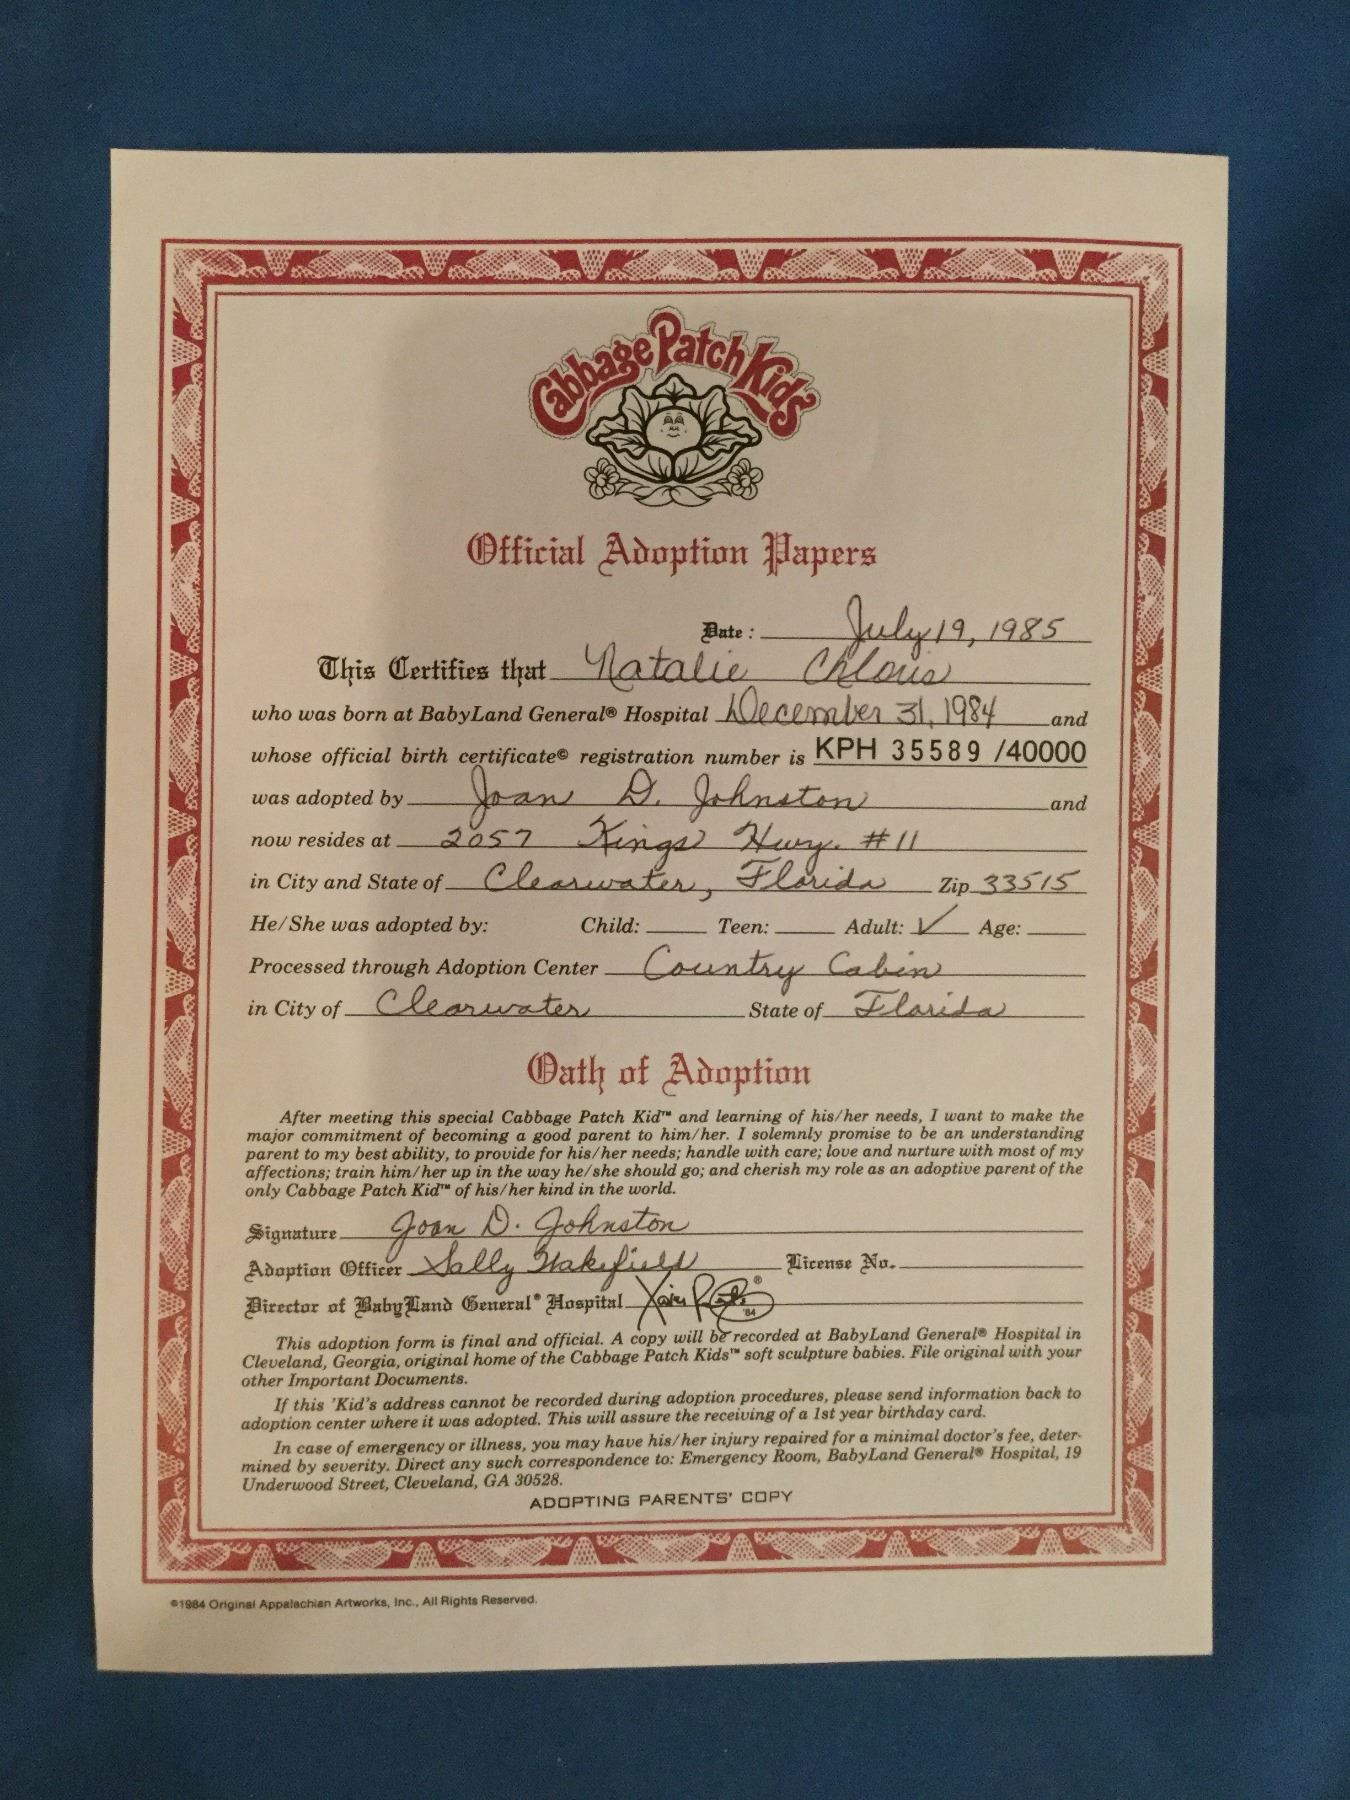 Cabbage Patch Kids
Official Adoption Papers
Date: July 19, 1985
This Certifies that Natalie Chloris
who was born at BabyLand General® Hospital December 31, 1984 and
whose official birth certificate© registration number is KPH 35589 /40000
was adopted by Joan D. Johnston and
now resides at 2057 Kings Hwy. #11
in City and State of Clearwater, Florida Zip 33515
He/She was adopted by: Child: Teen: Adult: ✓ Age:
Processed through Adoption Center Country Cabin
in City of Clearwater State of Florida
Oath of Adoption
After meeting this special Cabbage Patch Kid™ and learning of his/her needs, I want to make the
major commitment of becoming a good parent to him/her. I solemnly promise to be an understanding
parent to my best ability, to provide for his/her needs; handle with care; love and nurture with most of my
affections; train him/her up in the way he/she should go; and cherish my role as an adoptive parent of the
only Cabbage Patch Kid™ of his/her kind in the world.
Signature Joan D. Johnston
Adoption Officer Sally Wakefield License No.
Director of BabyLand General® Hospital Xavier Roberts ® '84
This adoption form is final and official. A copy will be recorded at BabyLand General® Hospital in
Cleveland, Georgia, original home of the Cabbage Patch Kids™ soft sculpture babies. File original with your
other Important Documents.
If this 'Kid's address cannot be recorded during adoption procedures, please send information back to
adoption center where it was adopted. This will assure the receiving of a 1st year birthday card.
In case of emergency or illness, you may have his/her injury repaired for a minimal doctor's fee, deter-
mined by severity. Direct any such correspondence to: Emergency Room, BabyLand General® Hospital, 19
Underwood Street, Cleveland, GA 30528.
ADOPTING PARENTS' COPY
©1984 Original Appalachian Artworks, Inc., All Rights Reserved.